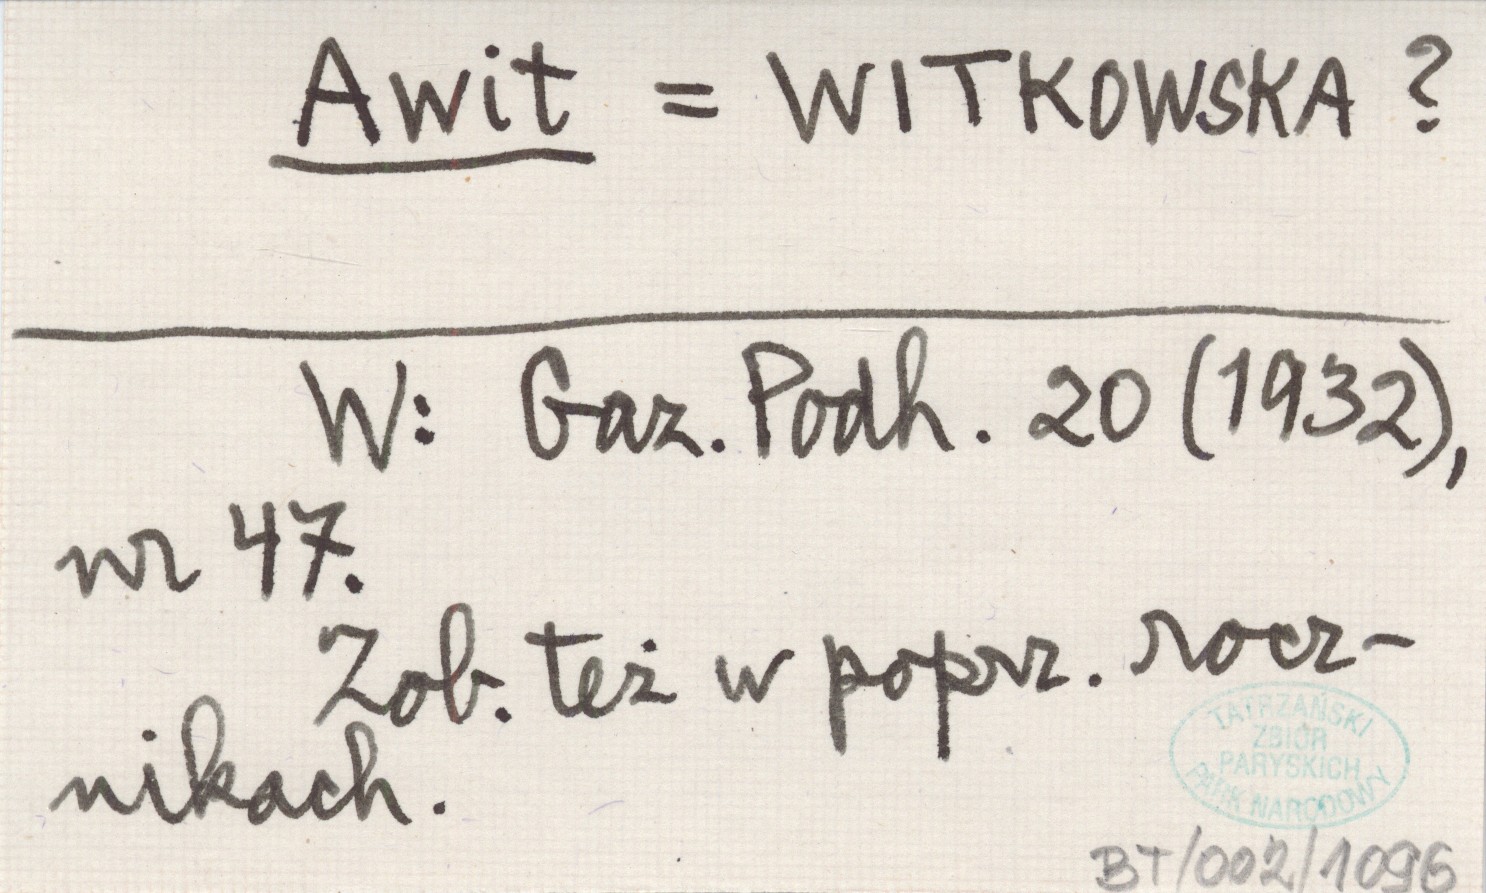 Awit = WITKOWSKA ?
W: Gaz. Podh. 20 (1932),
nr 47.
Zob. też w poprz. rocz-
nikach.
TATRZAŃSKI
ZBIÓR
PARYSKICH
PARK NARODOWY
BT/002/1096